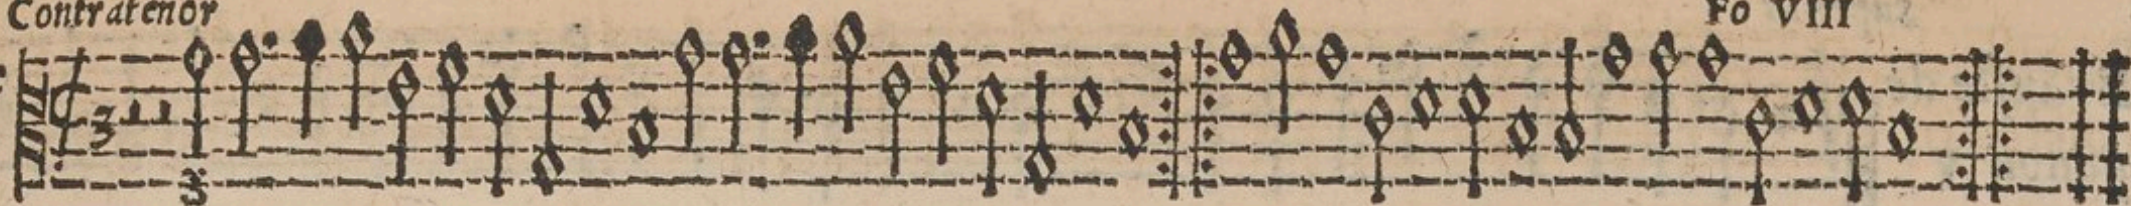 Contratenor Fo VIII
3
3